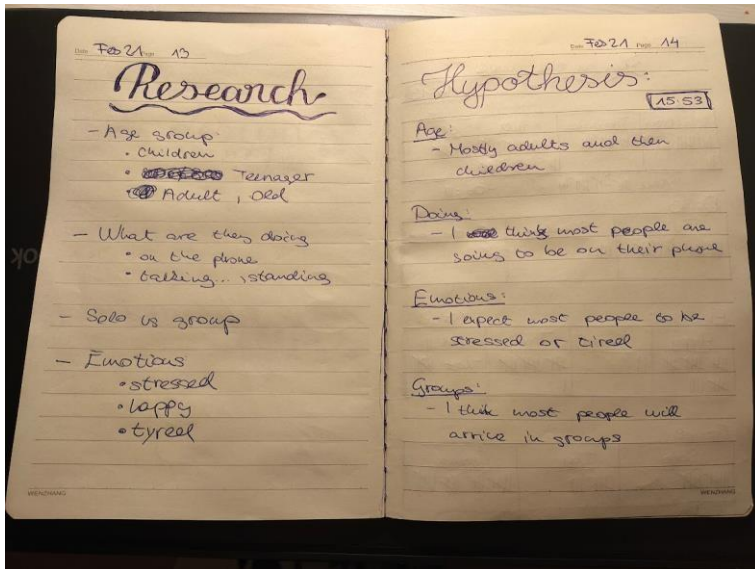 Date Feb 21 Page 13
Research
- Age group:
• Children
• Teenager
• Adult, Old
- What are they doing
• on the phone
• talking..., standing
- Solo vs group
- Emotions
• stressed
• happy
• tyred
WENZHANG
Date Feb 21 Page 14
Hypothesis:
15:53
Age:
- Mostly adults and then
children
Doing:
- I think most people are
going to be on their phone
Emotions:
- I expect most people to be
stressed or tired
Groups:
- I think most people will
arrive in groups
WENZHANG